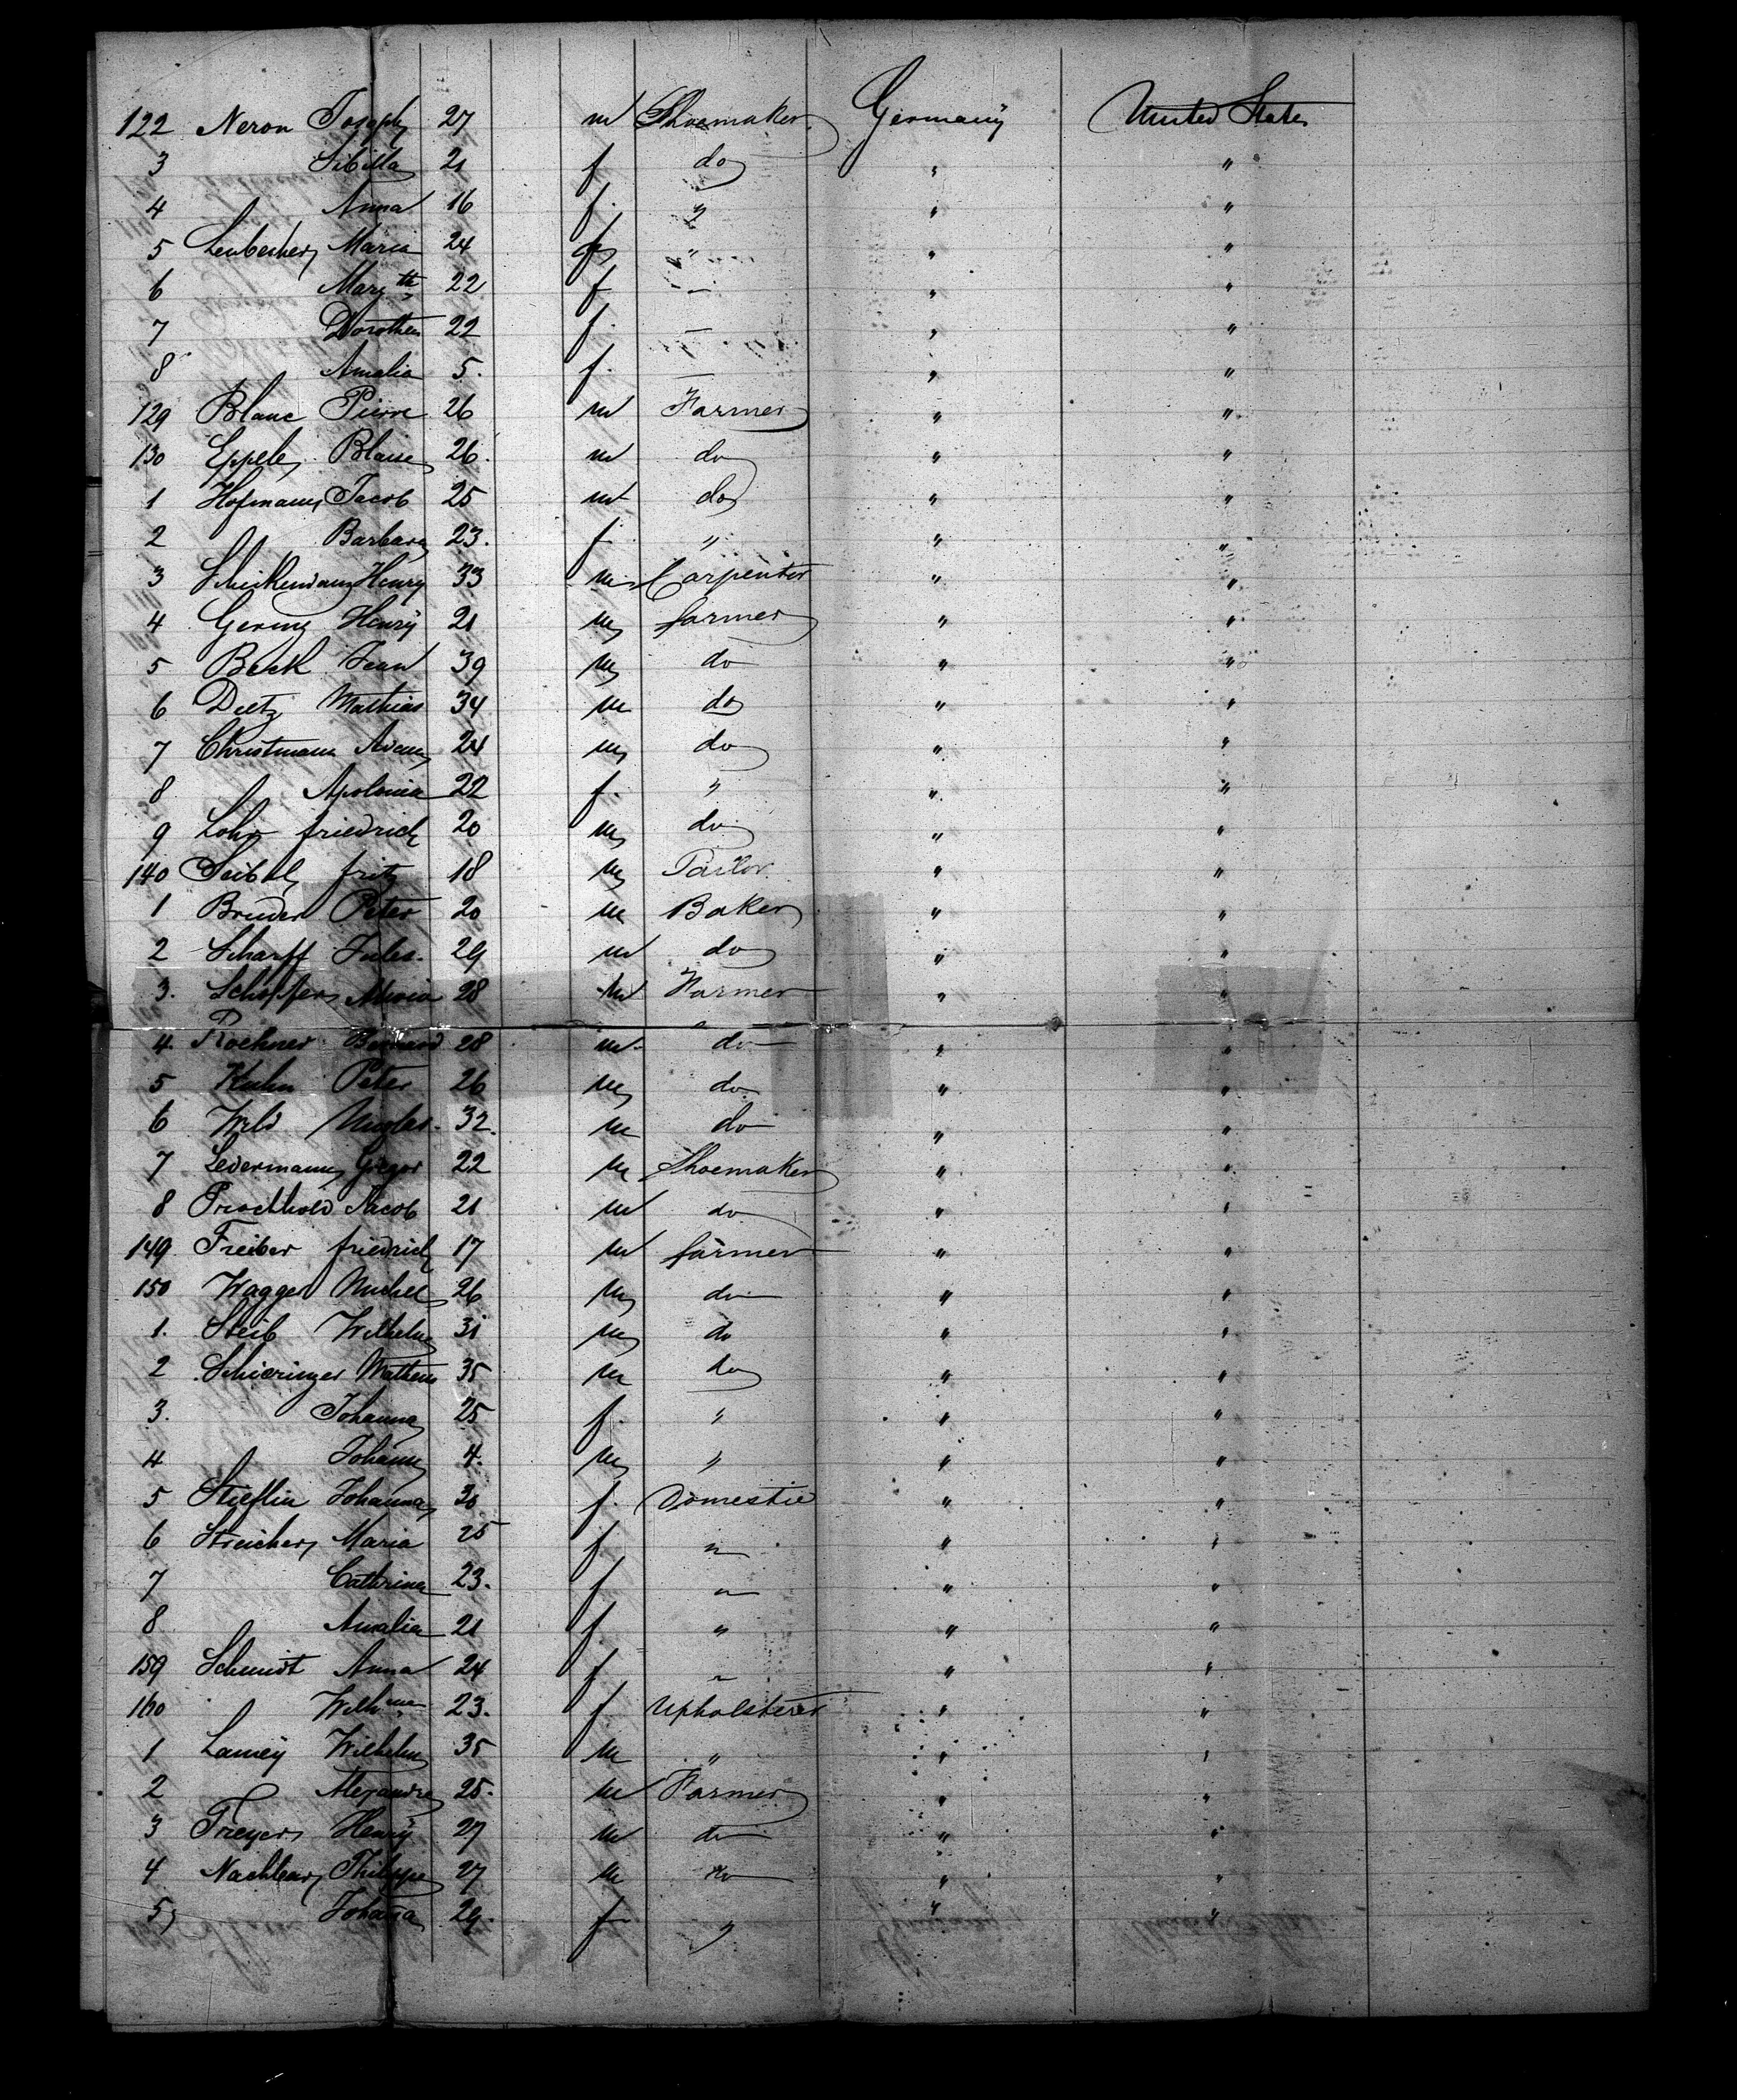 122 Neron Joseph 27 m Shoemaker Germany United States
3 Sibilla 21 f do " "
4 Anna 16 f. " " "
5 Leubecher Maria 24 f " " "
6 Marg th 22 f — " "
7 Dorothea 22 f. — " "
8 Amalia 5. f. — " "
129 Blanc Pierre 26 m Farmer " "
130 Eppele Blaise 26. m do " "
1 Hofmann Jacob 25 m do " "
2 Barbara 23. f " " "
3 Schickendanz Henry 33 m Carpenter " "
4 Gering Henry 21 m farmer " "
5 Beck Jean 39 m do " "
6 Dietz Mathias 34 m do " "
7 Christmann Adam 24 m do " "
8 Apolonia 22 f. " " "
9 Lohr friedrich 20 m do " "
140 Seibel fritz 18 m Tailor " "
1 Bruder Peter 20 m Baker " "
2 Scharff Jules 29 m do " "
3. 28 m Farmer " "
4. Rochner Bernard 28 m do " "
5 Kuhn Peter 26 m do " "
6 Wild Nicolas 32. m do " "
7 Ledermann Gregor 22 m Shoemaker " "
8 Jacob 21 m do " "
149 Freiber friedrich 17 m farmer " "
150 Wagger Michel 26 m do " "
1. Steib Wilhelm 31 m do " "
2 Schieringer Matheus 35 m do " "
3. Johanna 25 f. " " "
4 Johann 4. m " " "
5 Stieflin Johanna 30 f. Domestic " "
6 Streicher Maria 25 f " " "
7 Cathrina 23. f " " "
8 Amalia 21 f " " "
159 Schmidt Anna 24 f " " "
160 Wilh me 23. f Upholsterer " "
1 Lamey Wilhelm 35 m " " "
2 Alexandre 25. m Farmer " "
3 Freyer Henry 27 m do " "
4 Nachbar Philippe 27 m do " "
5 Johana 29. f " " "